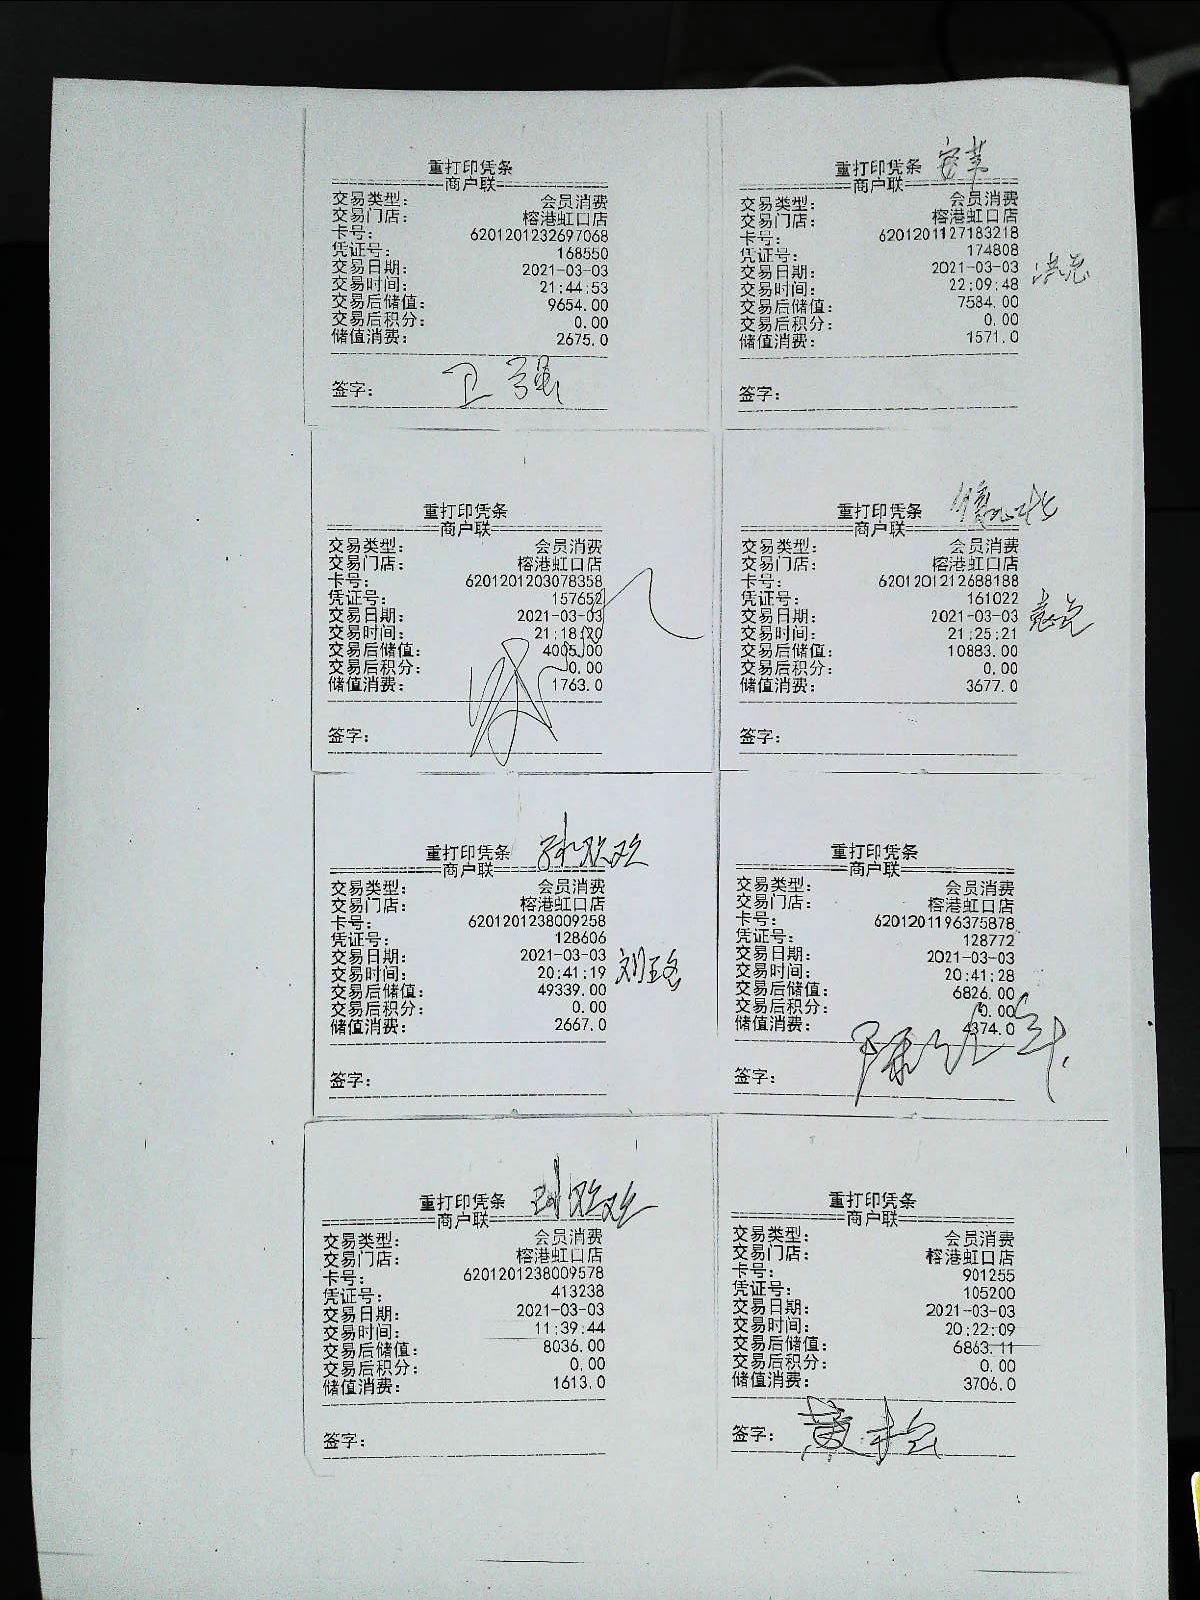 重打印凭条
商户联
交易类型: 会员消费
交易门店: 榕港虹口店
卡号: 6201201232697068
凭证号: 168550
交易日期: 2021-03-03
交易时间: 21:44:53
交易后储值: 9654.00
交易后积分: 0.00
储值消费: 2675.0
签字: 卫强
重打印凭条
商户联
交易类型: 会员消费
交易门店: 榕港虹口店
卡号: 6201201127183218
凭证号: 174808
交易日期: 2021-03-03
交易时间: 22:09:48
交易后储值: 7584.00
交易后积分: 0.00
储值消费: 1571.0
签字:
重打印凭条
商户联
交易类型: 会员消费
交易门店: 榕港虹口店
卡号: 6201201203078358
凭证号: 157652
交易日期: 2021-03-03
交易时间: 21:18:20
交易后储值: 4005.00
交易后积分: 0.00
储值消费: 1763.0
签字:
重打印凭条
商户联
交易类型: 会员消费
交易门店: 榕港虹口店
卡号: 6201201212688188
凭证号: 161022
交易日期: 2021-03-03
交易时间: 21:25:21
交易后储值: 10883.00
交易后积分: 0.00
储值消费: 3677.0
签字:
重打印凭条 孙欢欢
商户联
交易类型: 会员消费
交易门店: 榕港虹口店
卡号: 6201201238009258
凭证号: 128606
交易日期: 2021-03-03
交易时间: 20:41:19
交易后储值: 49339.00
交易后积分: 0.00
储值消费: 2667.0
签字:
重打印凭条
商户联
交易类型: 会员消费
交易门店: 榕港虹口店
卡号: 6201201196375878
凭证号: 128772
交易日期: 2021-03-03
交易时间: 20:41:28
交易后储值: 6826.00
交易后积分: 0.00
储值消费: 4374.0
签字:
重打印凭条
商户联
交易类型: 会员消费
交易门店: 榕港虹口店
卡号: 6201201238009578
凭证号: 413238
交易日期: 2021-03-03
交易时间: 11:39:44
交易后储值: 8036.00
交易后积分: 0.00
储值消费: 1613.0
签字:
重打印凭条
商户联
交易类型: 会员消费
交易门店: 榕港虹口店
卡号: 901255
凭证号: 105200
交易日期: 2021-03-03
交易时间: 20:22:09
交易后储值: 6863.11
交易后积分: 0.00
储值消费: 3706.0
签字: